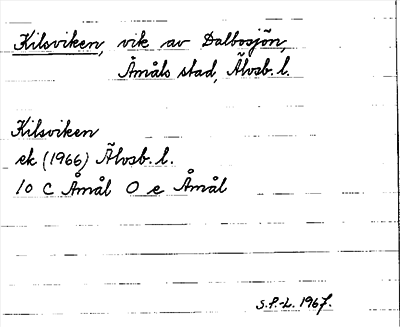 Kilsviken, vik av Dalbosjön,
Åmåls stad, Älvsb. l.
Kilsviken
ek (1966) Älvsb. l.
10 C Åmål O e Åmål
S.P.-L. 1967.